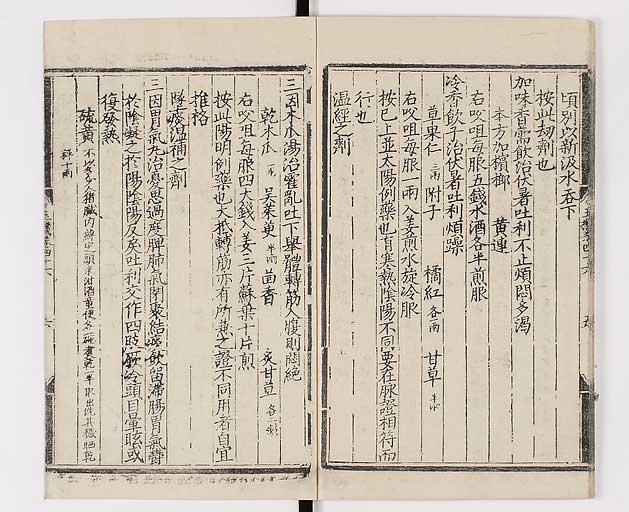 頃別以新汲水吞下
按此劫劑也
加味香需飲治伏暑吐利不止煩悶多渴
本方加檳榔 黃連
右㕮咀每服五錢水酒各半煎服
冷香飲子治伏暑吐利煩燥
草果仁 三兩 附子 橘紅 各兩 甘草 半兩
右㕮咀每服一兩入姜煎水旋冷服
按已上並太陽例藥也有寒熱陰陽不同要在脉證相符而
行也
溫經之劑
三因木瓜湯治霍亂吐下舉體轉筋入腹則悶絕
乾木瓜 一兩 吳茱萸 半兩 茴香 炙甘草 各二錢
右㕮咀每服四大錢入姜三片蘇葉十片煎
按此陽明例藥也大抵轉筋亦有所兼之證不同用者自宜
推格
墜痰溫補之劑
三因胃氣丸治憂思過度脾肺氣閉聚結 飲留滯腸胃氣鬱
於陰凝之於陽陰陽反戾吐利交作四肢厥冷頭目暈眩或
復發熱
硫黃 不以多少入猪臟內 酒煮 半取出洗其穢晒乾
秤十兩